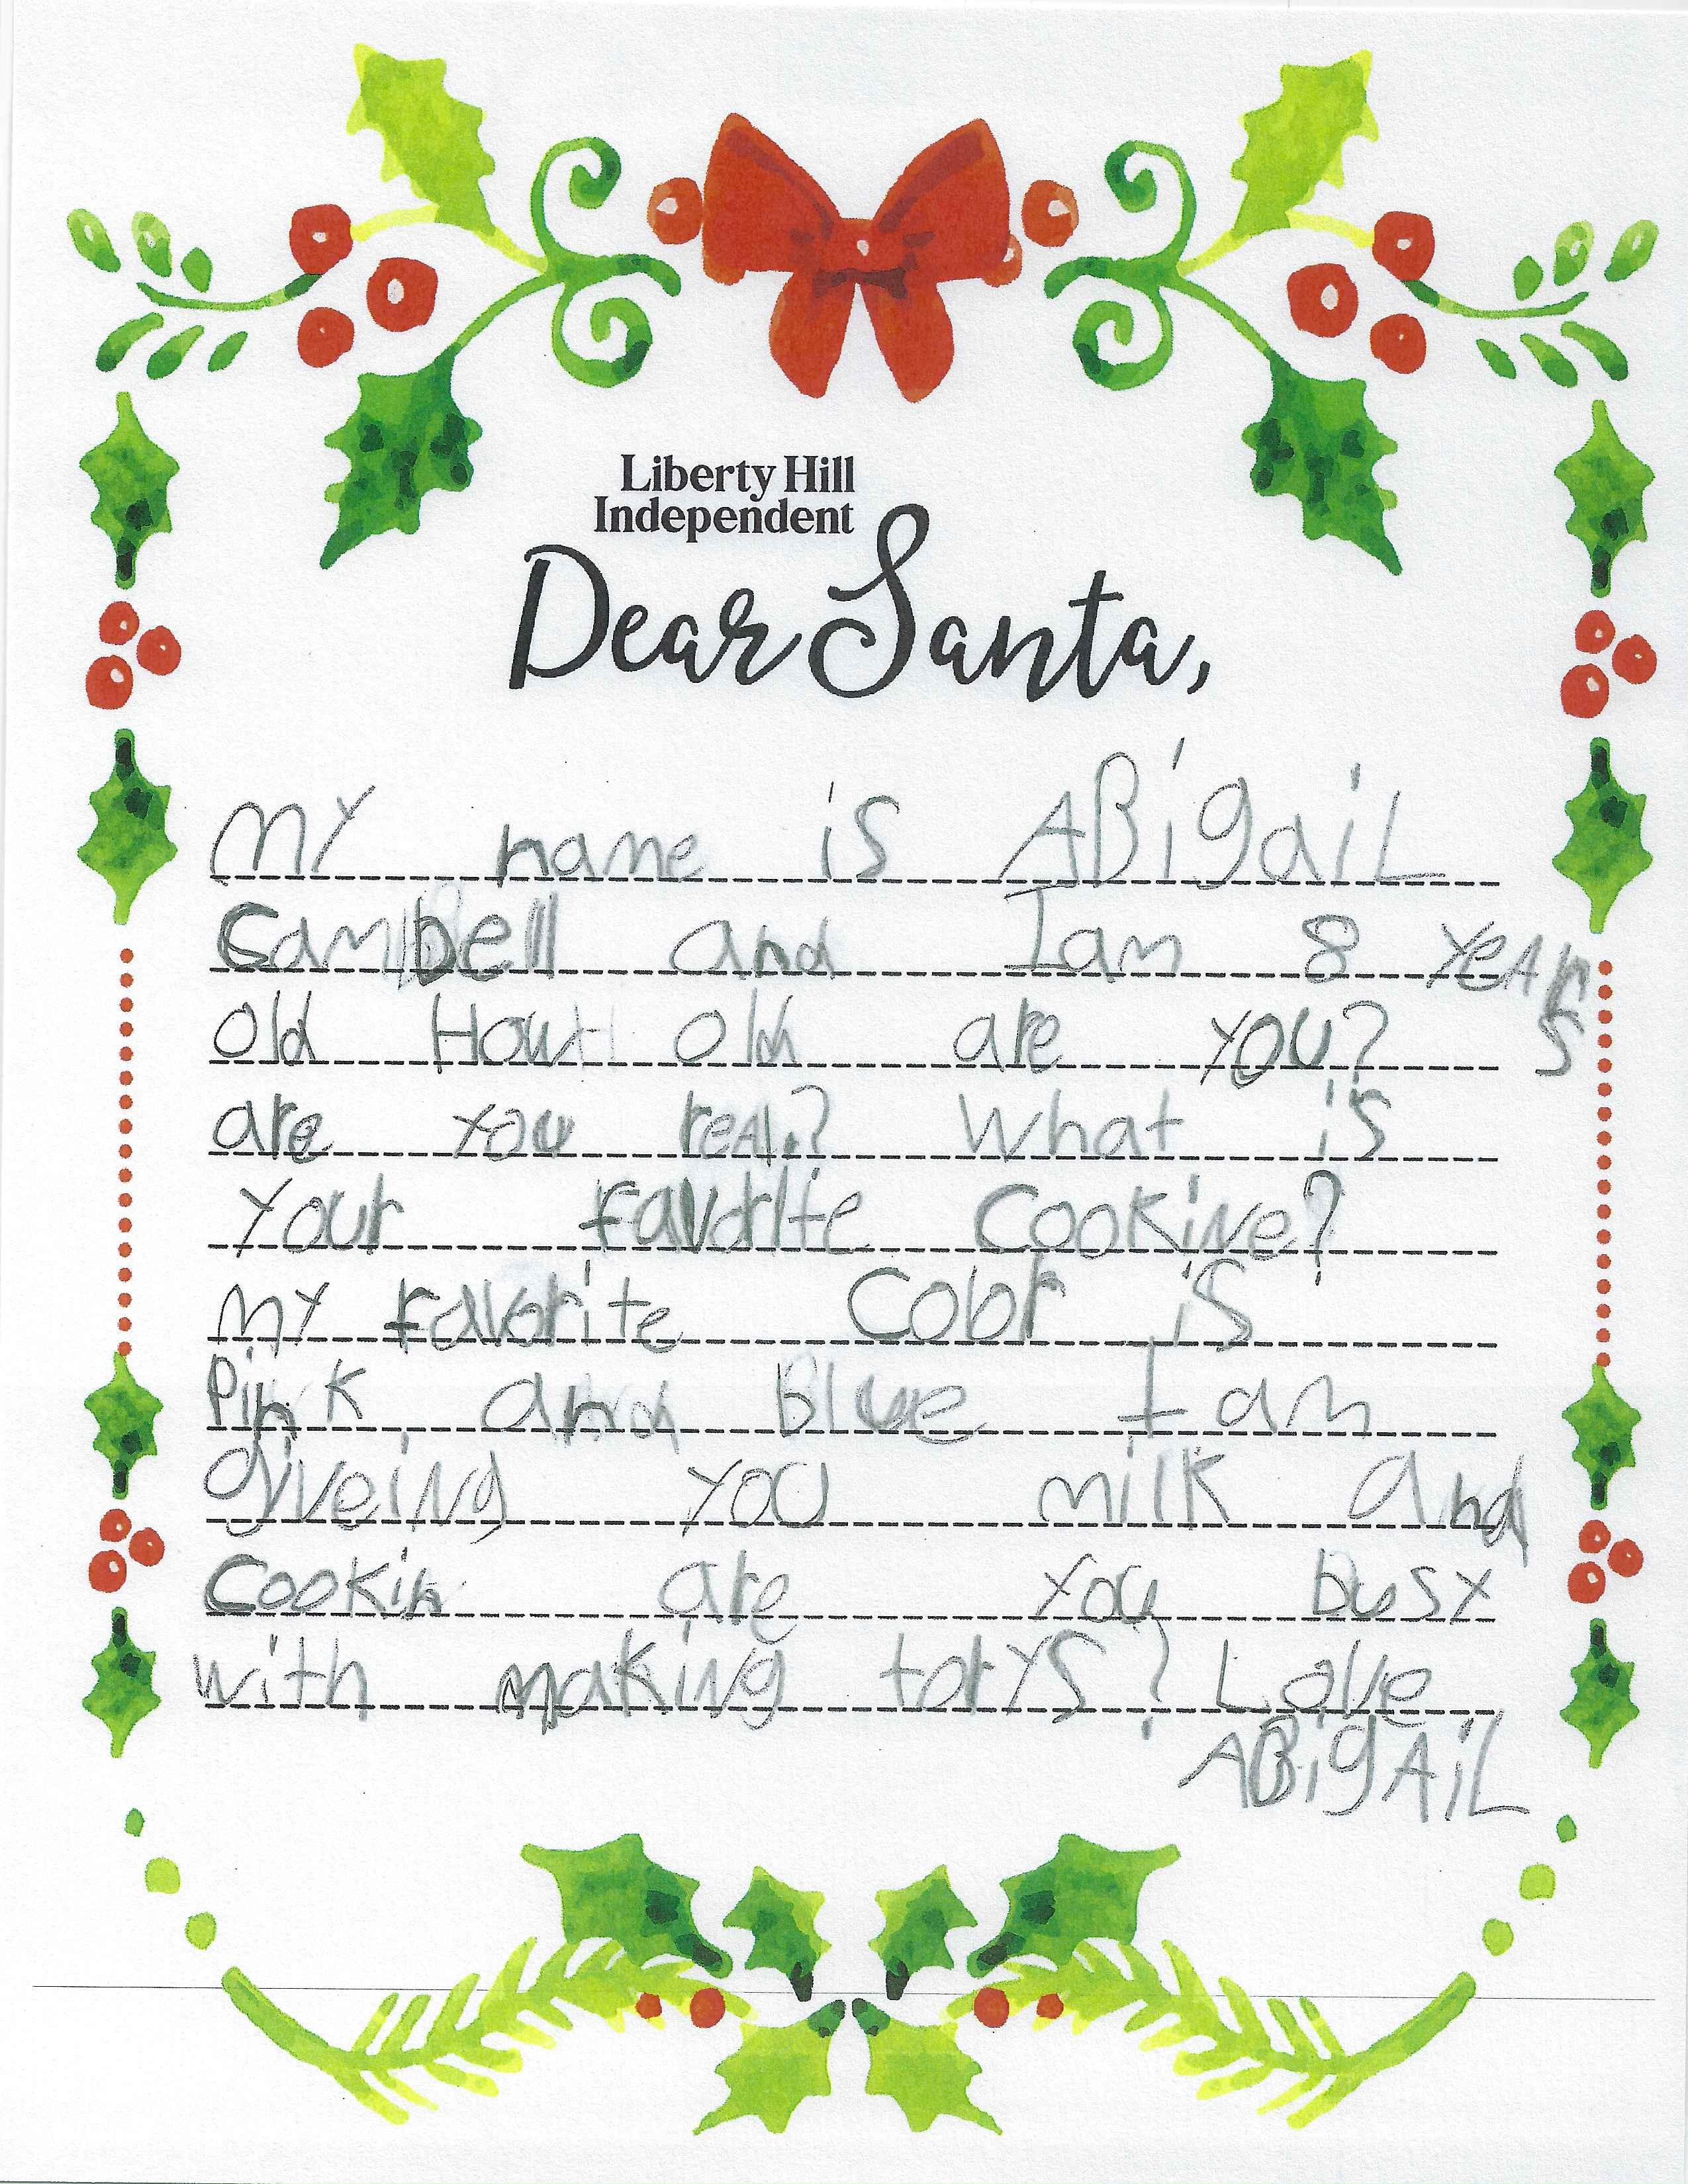 Liberty Hill
Independent
Dear Santa,
MY name is ABigaiL
Cambell and I am 8 YeArs
old How old are YOU?
are you reAl.? What is
Your favorite Cookine?
MY favorite Color is
Pink and Blue I am
giveing YOU milk and
Cookin are you busy
with making torys? Love
ABigAiL